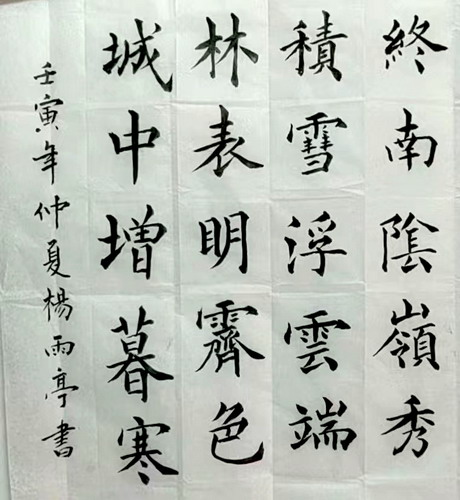 終南陰嶺秀
積雪浮雲端
林表明霽色
城中增暮寒
壬寅年仲夏楊雨亭書